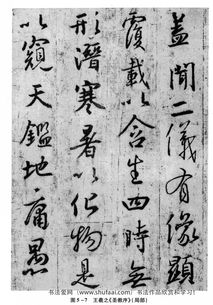 盖闻二仪有像显
覆载以含生四时无
形潜寒暑以化物是
以窥天鉴地庸愚
书法爱网（www.shufaai.com）书法作品欣赏和学习！
图5-7 王羲之《圣教序》（局部）